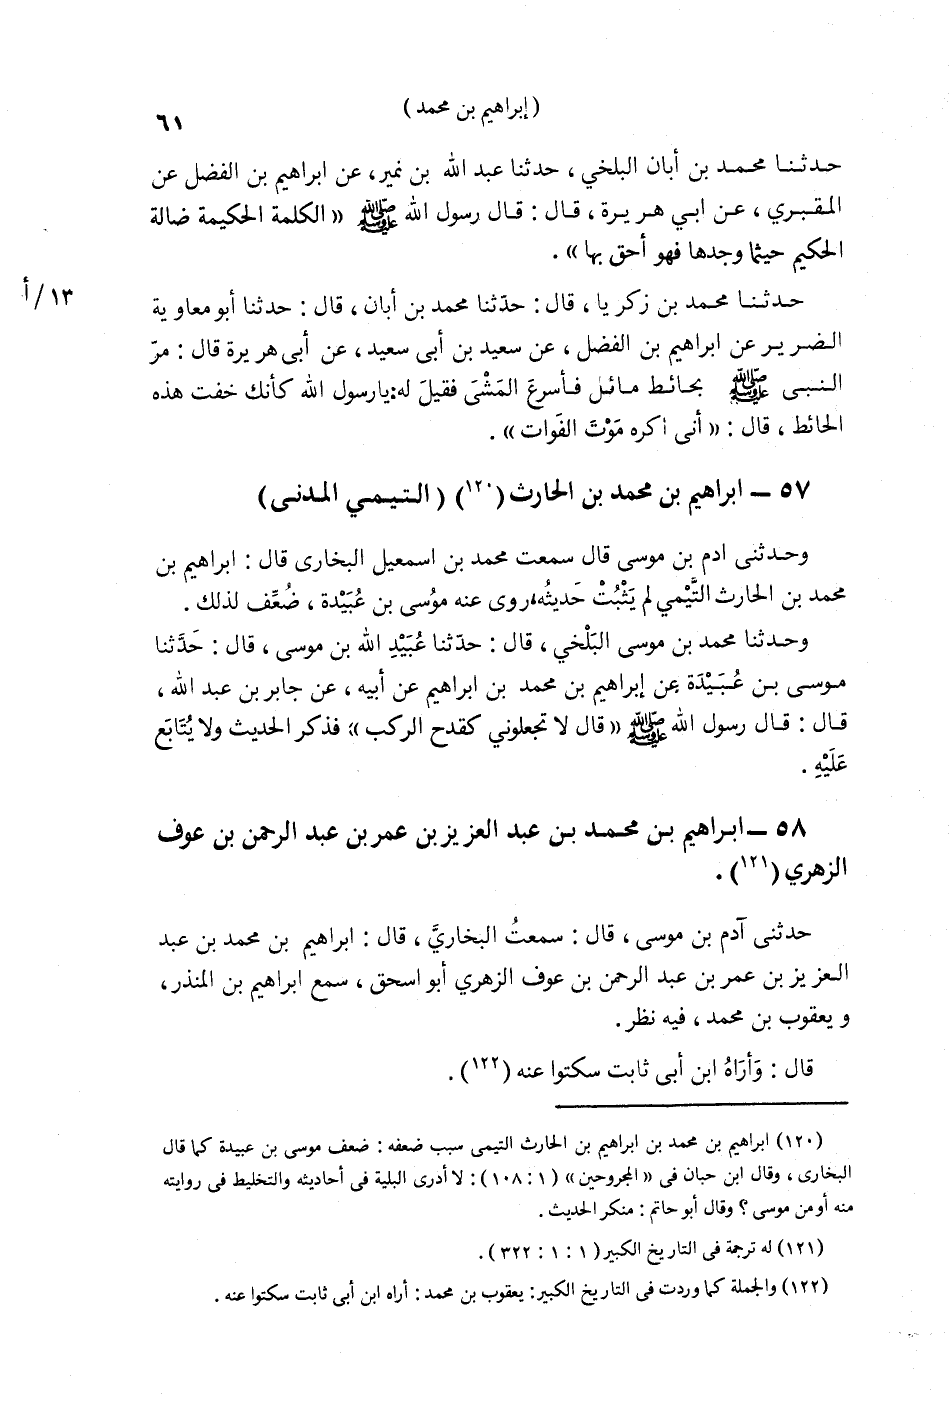 (إبراهيم بن محمد)
٦١
حدثنا محمد بن أبان البلخي ، حدثنا عبد الله بن نمير، عن ابراهيم بن الفضل عن
المقبري ، عن ابي هريرة ، قال : قال رسول الله ﷺ « الكلمة الحكيمة ضالة
الحكيم حيثما وجدها فهو أحق بها » .
١٣/أ
حدثنا محمد بن زكريا ، قال : حدّثنا محمد بن أبان ، قال : حدثنا أبو معاوية
الضرير عن ابراهيم بن الفضل ، عن سعيد بن أبى سعيد ، عن أبى هريرة قال : مرّ
النبى ﷺ بحائط مائل فأسرعَ المَشْىَ فقيلَ له:يارسول الله كأنك خفت هذه
الحائط ، قال : « أنى أكره مَوْتَ الفَوات » .
٥٧ ــ ابراهيم بن محمد بن الحارث(١٢٠) ( التيمي المدنى)
وحدثنى ادم بن موسى قال سمعت محمد بن اسمعيل البخارى قال : ابراهيم بن
محمد بن الحارث التَّيْمي لم يَثْبُتْ حَديثُه،روى عنه موُسى بن عُبَيْدة ، ضُعِّف لذلك .
وحدثنا محمد بن موسى البَلْخي ، قال : حدّثنا عُبَيْدِ الله بن موسى ، قال : حَدَّثنا
موسى بن عُبَيْدَة عن إبراهيم بن محمد بن ابراهيم عن أبيه ، عن جابر بن عبد الله ،
قال : قال رسول الله ﷺ « قال لا تجعلوني كقدح الركب » فذكر الحديث ولا يُتَابَع
عَلَيْهِ .
٥٨ ــ ابراهيم بن محمد بن عبد العزيز بن عمر بن عبد الرحمن بن عوف
الزهري (١٢١) .
حدثنى آدم بن موسى ، قال : سمعتُ البخاريَّ ، قال : ابراهيم بن محمد بن عبد
العزيز بن عمر بن عبد الرحمن بن عوف الزهري أبو اسحق ، سمع ابراهيم بن المنذر ،
ويعقوب بن محمد ، فيه نظر .
قال : وَأرَاهُ ابن أبى ثابت سكتوا عنه (١٢٢) .
(١٢٠) ابراهيم بن محمد بن ابراهيم بن الحارث التيمى سبب ضعفه : ضعف موسى بن عبيدة كما قال
البخارى ، وقال ابن حبان فى « المجروحين » (١ : ١٠٨) : لا أدرى البلية فى أحاديثه والتخليط فى روايته
منه أو من موسى ؟ وقال أبو حاتم : منكر الحديث .
(١٢١) له ترجمة فى التاريخ الكبير (١ : ١ : ٣٢٢) .
(١٢٢) والجملة كما وردت فى التاريخ الكبير : يعقوب بن محمد : أراه ابن أبى ثابت سكتوا عنه .